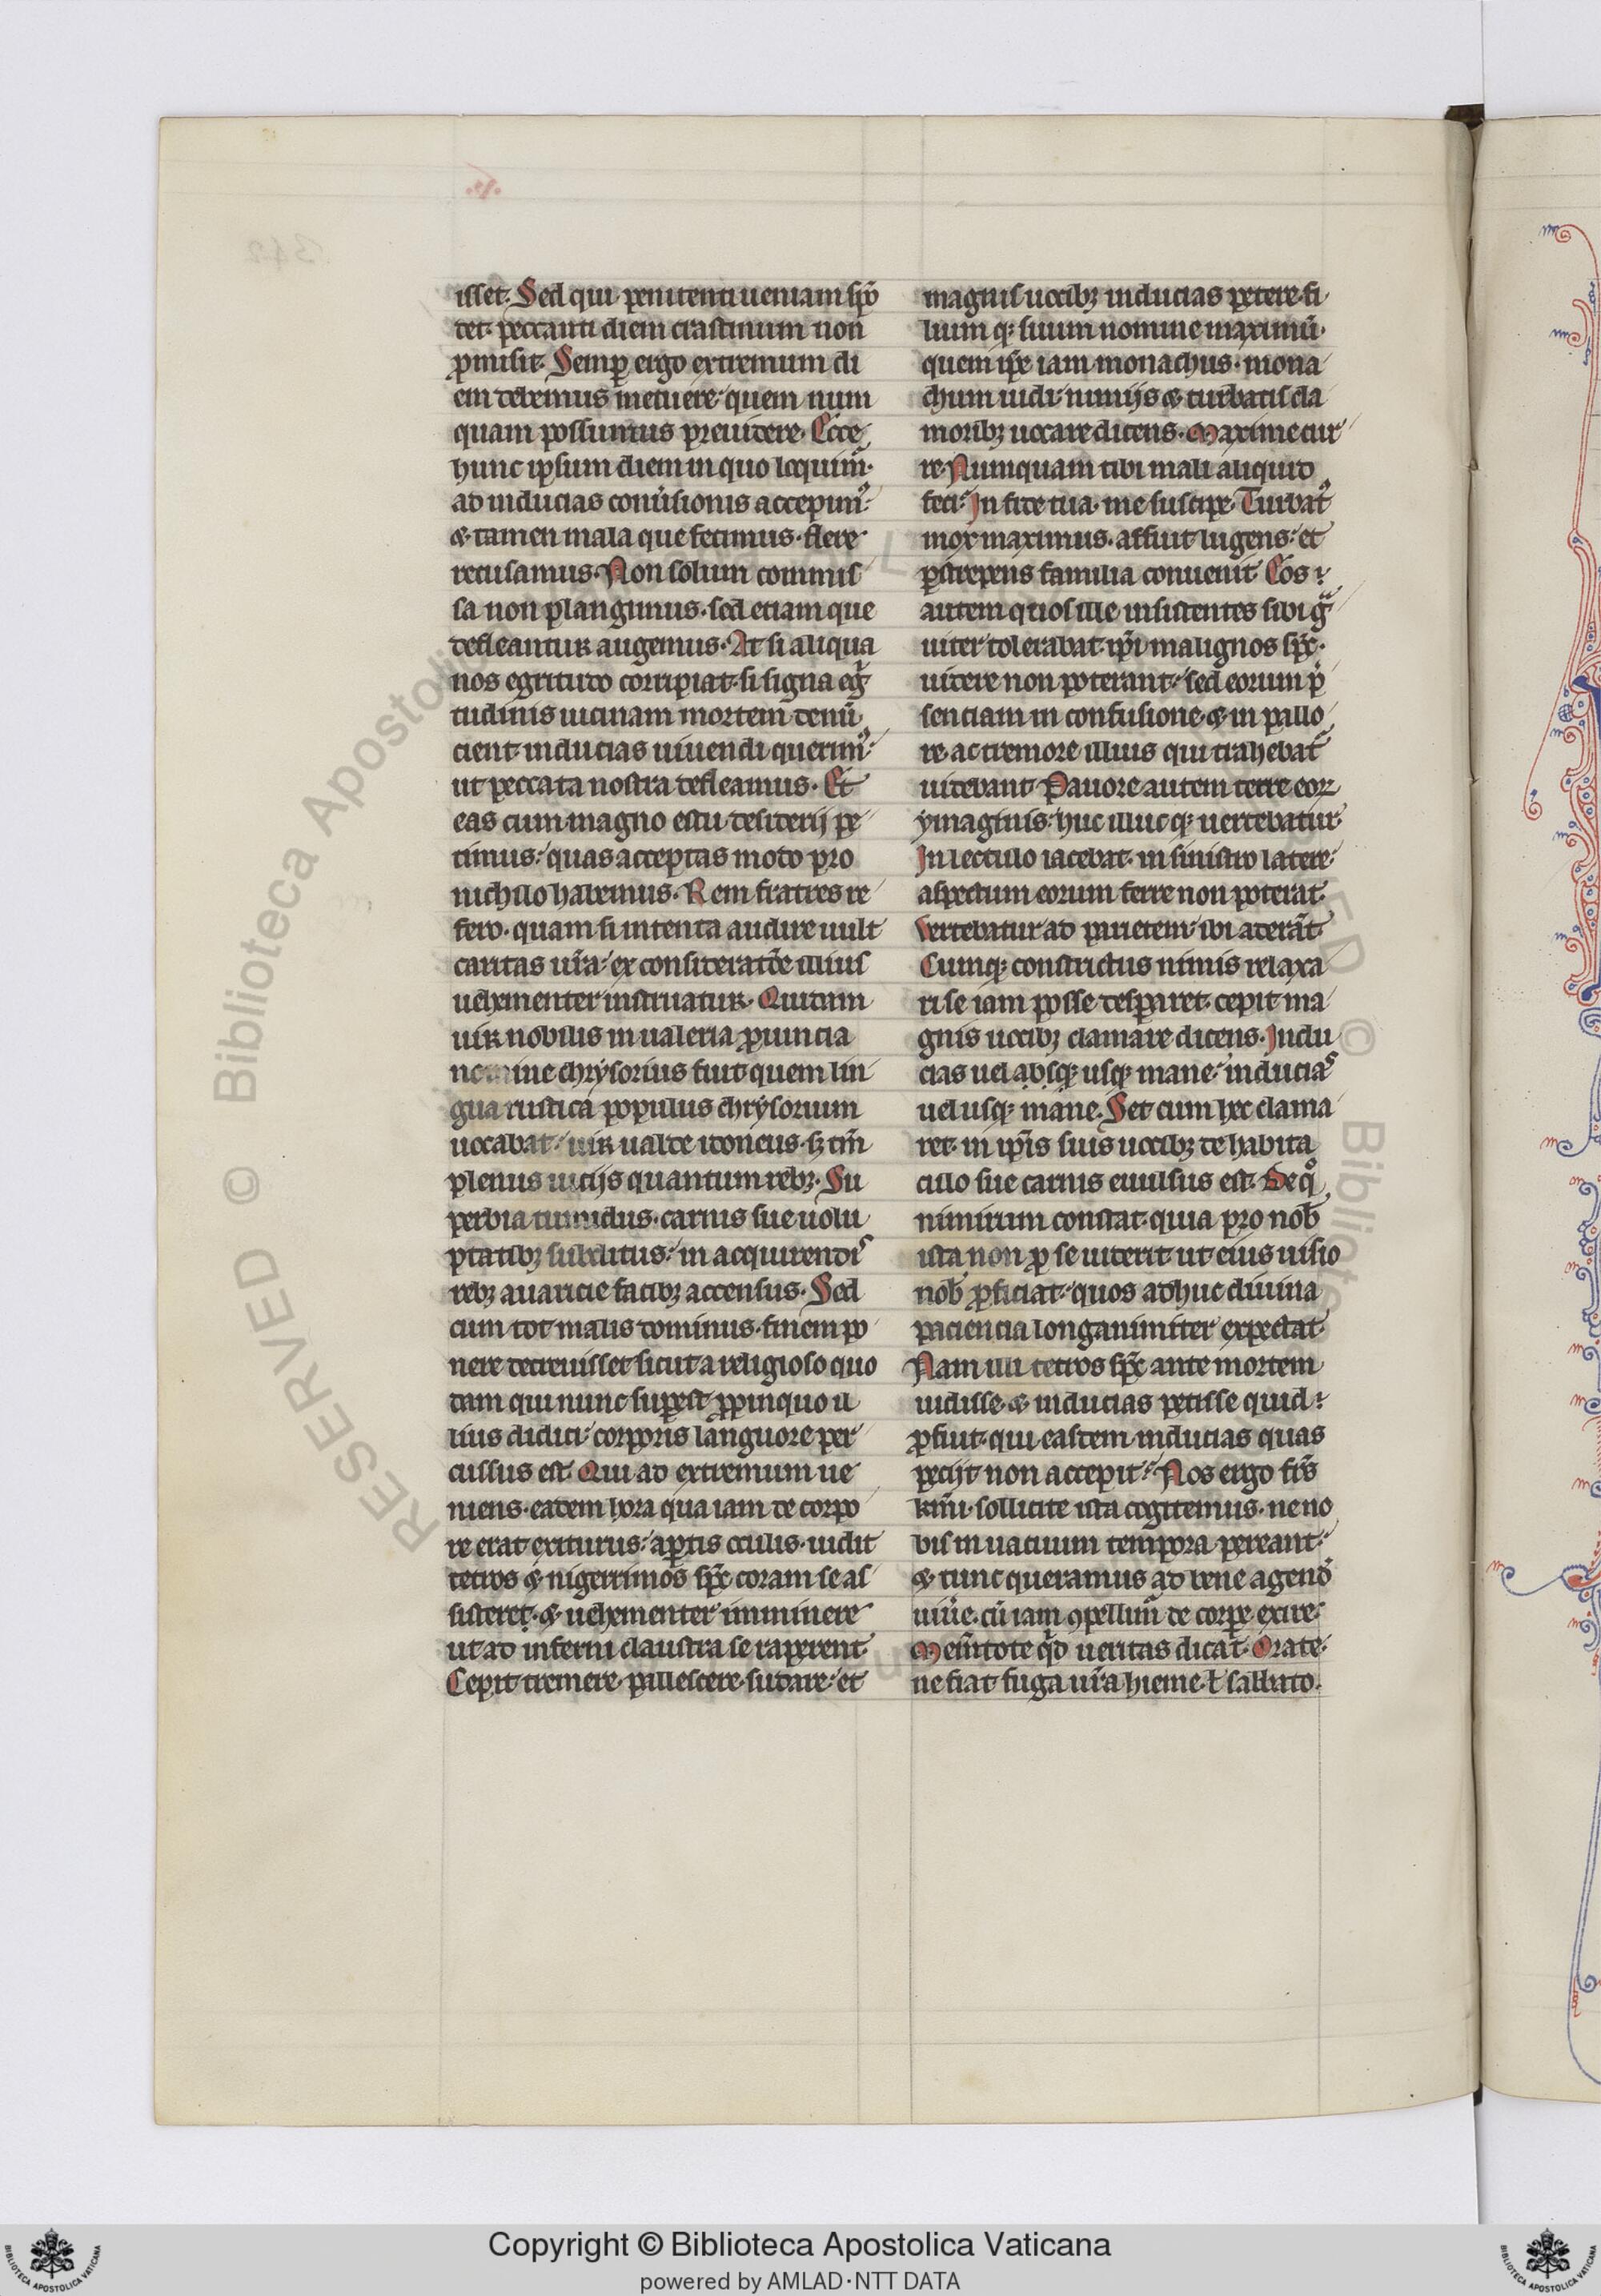 isset. Sed qui penitenti ueniam spo̅
det. peccanti diem crastinum non
ꝓmisit. Semꝑ ergo extremum di
em debemus metuere. quem num
quam possumus preuidere. Ecce
hunc ipsum diem in quo loquim̃.
ad inducias conu̾sionis accepimꝰ.
⁊ tamen mala que fecimus. flere
recusamus. Non solum commis
sa non plangimus. sed etiam que
defleantur augemus. At si aliqua
nos egritudo corripiat. si signa eg̾
tudinis uicinam mortem denu̅
cient. inducias uiuendi querimꝰ.
ut peccata nostra defleamus. Et
eas cum magno estu desiderij pe
timus. quas acceptas modo pro
nichilo habemus. Rem fratres re
fero. quam si intenta audire uult
caritas ur̅a. ex consideratõe illius
uehementer instruatur. Quidam
uir nobilis in ualeria ꝓuincia
nomine chrẏsorius fuit quem lin
gua rustica populus chrẏsorium
uocabat. uir ualde idoneus. sꝫ tm̅
plenus uicijs quantum rebꝫ. Su
perbia tumidus. carnis sue uolu
ptatibꝫ subditus. in acquirendis
rebꝫ auaricie facibꝫ accensus. Sed
cum tot malis dominus. finem po
nere decreuisset sicut a religioso quo
dam qui nunc suꝑest. ꝓpinquo il
lius didici. corporis languore per
cussus est. Qui ad extremum ue
niens. eadem hora qua iam de corpo
re erat exiturus. aꝑtis oculis. uidit
tetros ⁊ nigerrimos sp̅c coram se as
sistere. ⁊ uehementer imminere
ut ad inferni claustra se raperent.
Cepit tremere. pallescere. sudare. et
magnis uocibꝫ inducias petere. fi
lium qꝫ suum nomine maximu̅.
quem ipse iam monachus. mona
chum uidi. nimijs ⁊ turbatis cla
moribꝫ uocare dicens. Maxime cur
re. Numquam tibi mali aliquid
feci. In fide tua. me suscipe. Turbatꝰ
mox maximus. affuit lugens. et
ꝑstrepens familia conuenit. Eos
autem quos ille insistentes sibi gͣ
uiter tolerabat. ip̅i malignos sp̅c.
uidere non poterant. sed eorum p̾
senciam in confusione. ⁊ in pallo
re. ac tremore illius qui trahebat̾
uidebant. Pauore autem tetre eoꝝ
ẏmaginis. huc illuc qꝫ uertebatur.
In lectulo iacebat. in sinistro latere.
aspectum eorum ferre non poterat.
Vertebatur ad parietem. ibi aderãt.
Cumqꝫ constrictus nimis relaxa
ri se iam posse desꝑaret. cepit ma
gnis uocibꝫ clamare dicens. Indu
cias uel absqꝫ usqꝫ mane. inducias
uel usqꝫ mane. Set cum hec clama
ret. in ip̅is suis uocibꝫ de habita
culo sue carnis euulsus est. De qͦ
nimirum constat. quia pro nob̅
ista non ꝓ se uiderit ut eius uisio
nob̅ ꝓficiat. quos adhuc diuina
paciencia longanimiter expectat.
Nam illi tetros sp̅c ante mortem
uidisse. ⁊ inducias petisse quid
ꝓfuit. qui easdem inducias quas
pecijt non accepit. Nos ergo fr̅s
km̅i. sollicite ista cogitemus. ne no
bis in uacuum tempora pereant.
⁊ tunc queramus ad bene agend̾
uiu̾e. cu̅ iam ꝯpellim̃ de corpe exire.
Mem̅tote qͩ ueritas dicat. Orate.
ne fiat fuga ur̅a hieme. ł sabbato.
RESERVED © Biblioteca Apostolica
Copyright © Biblioteca Apostolica Vaticana
powered by AMLAD·NTT DATA